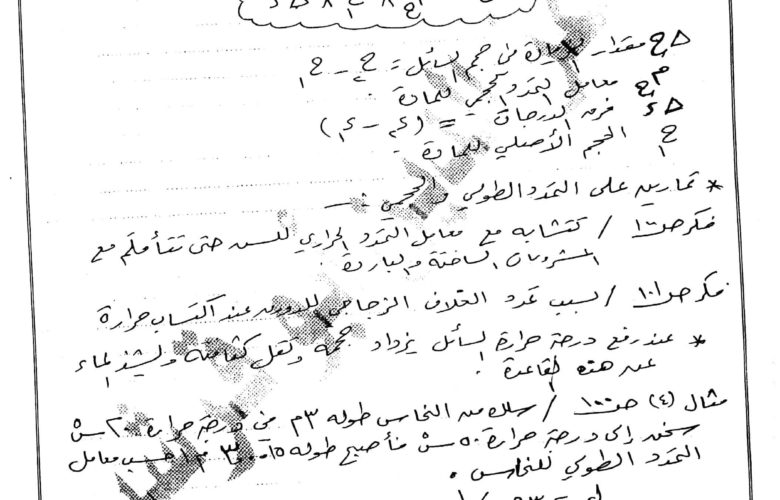 Δح مقدار الزيادة في حجم السائل = ح٢ - ح١
م ح معامل التمدد الحجمي للمادة
Δء فرق الدرجات = (ء٢ - ء١)
ح١ الحجم الأصلي للمادة
* تمارين على التمدد الطولي والحجمي :-
فكر صـ١٠٠ / تتشابه مع معامل التمدد الحراري للسن حتى تتأقلم مع
المشروبات الساخنة والباردة.
فكر صـ١٠١ / بسبب تمدد الغلاف الزجاجي للدورق عند اكتساب حرارة
* عند رفع درجة حرارة السائل يزداد حجمه وتقل كثافته ويشذ الماء
عن هذه القاعدة.
مثال (٤) صـ١٠٠ / سلك من النحاس طوله ٣م في درجة حرارة ٢٠°س
سخن إلى درجة حرارة ٥٠°س فأصبح طوله احسب معامل
التمدد الطولي للنحاس.